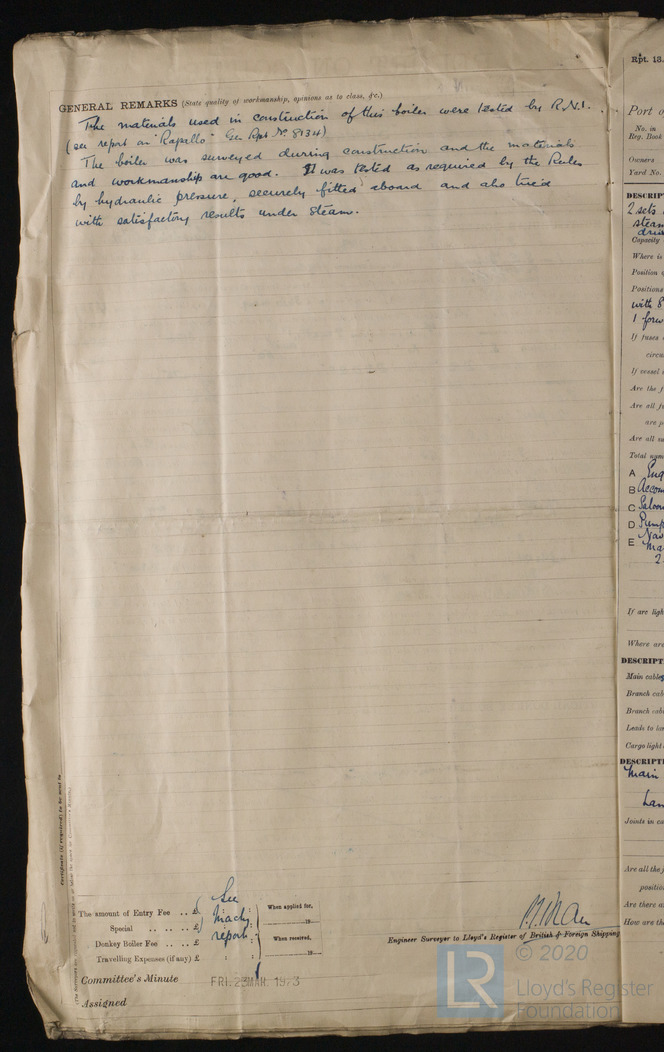 GENERAL REMARKS (State quality of workmanship, opinions as to class, &c.)
The materials used in construction of this boiler were tested by R.N.I.
(see report on "Rapallo" Gen Rpt No 8134)
The boiler was surveyed during construction and the materials
and workmanship are good. It was tested as required by the Rules
by hydraulic pressure, securely fitted aboard and also tried
with satisfactory results under steam.
The amount of Entry Fee .. £
Special .. £
Donkey Boiler Fee .. £
Travelling Expenses (if any) £
See
Machy
report.
When applied for,
19
When received,
19
Engineer Surveyor to Lloyd's Register of British & Foreign Shipping
Committee's Minute
FRI. 23 MAR. 1923
Assigned
© 2020
LR
Lloyd's Register
Foundation
Rpt. 13.
Port o
No. in
Reg. Book
Owners
Yard No.
DESCRIPT
2 sets
steam
Capacity
Where is
Position
Positions
with 8
1 forw
If fuses
circu
If vessel
Are the f
Are all f
are p
Are all su
Total num
A Eng
B Accom
C Saloon
D Pump
E Nav
Ma
2
If are ligh
Where are
DESCRIPT
Main cables
Branch cab
Branch cab
Leads to la
Cargo light
DESCRIPTI
Main
Lam
Joints in ca
Are all the j
positio
Are there a
How are th